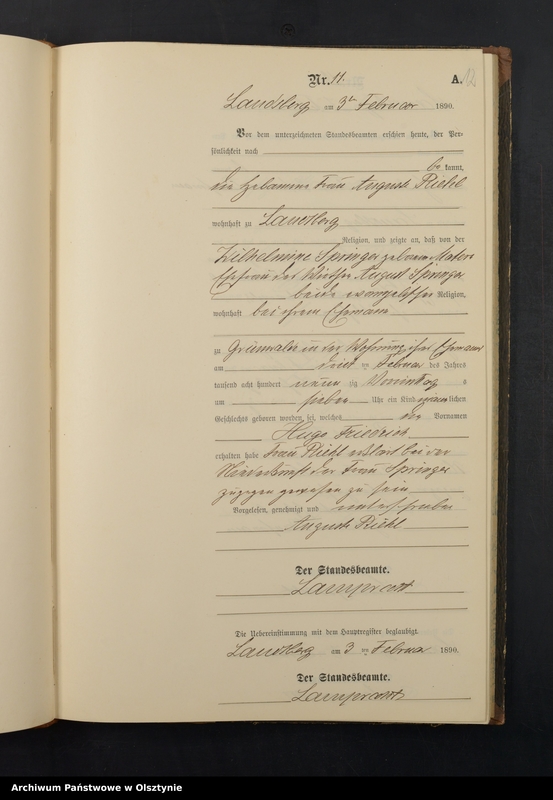 Nr. 11.
A. 12
Landsberg am 3ten Februar 1890.
Vor dem unterzeichneten Standesbeamten erschien heute, der Per-
sönlichkeit nach
be kannt,
die Hebamme Frau Auguste Riehl
wohnhaft zu Landsberg
Religion, und zeigte an, daß von der
Wilhelmine Springer geborene
Ehefrau des Wirths August Springer
beide evangelischer Religion,
wohnhaft bei ihrem Ehemann
zu Grünwalde in der Wohnung ihres Ehemanns
am Februar des Jahres
tausend acht hundert neun zig
um sieben Uhr ein Kind männlichen
Geschlechts geboren worden sei, welches die Vornamen
Hugo Friedrich
erhalten habe Frau Riehl erklärt bei der
Niederkunft der Frau Springer
zugegen gewesen zu sein
Vorgelesen, genehmigt und unterschrieben
Auguste Riehl
Der Standesbeamte.
Die Uebereinstimmung mit dem Hauptregister beglaubigt.
Landsberg am 3 ten Februar 1890.
Der Standesbeamte.
Archiwum Państwowe w Olsztynie